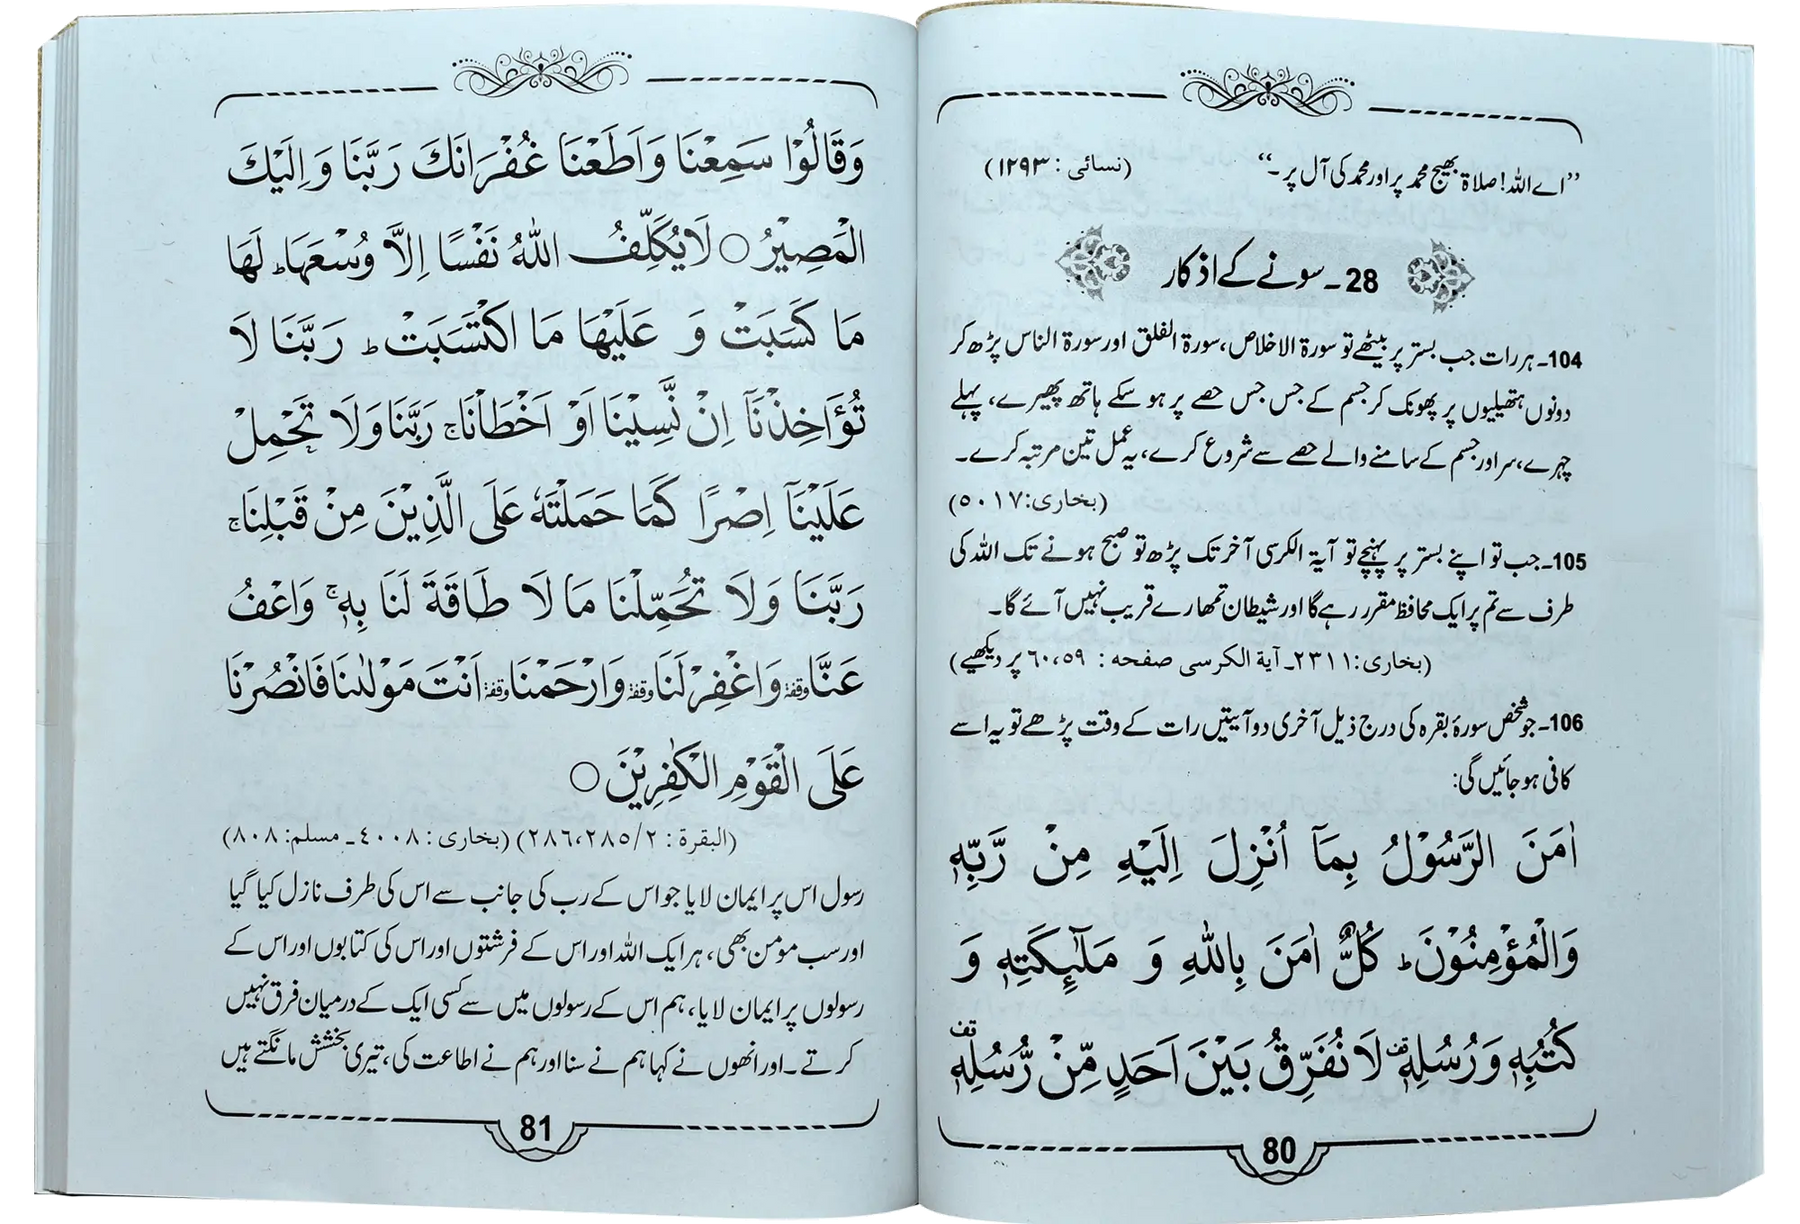 ”اے اللہ! صلاۃ بھیج محمد پر اور محمد کی آل پر۔“ (نسائی : ۱۲۹۳)
28۔ سونے کے اذکار
104۔ ہر رات جب بستر پر بیٹھے تو سورۃ الاخلاص، سورۃ الفلق اور سورۃ الناس پڑھ کر
دونوں ہتھیلیوں پر پھونک کر جسم کے جس جس حصے پر ہو سکے ہاتھ پھیرے، پہلے
چہرے، سر اور جسم کے سامنے والے حصے سے شروع کرے، یہ عمل تین مرتبہ کرے۔
(بخاری: ۵۰۱۷)
105۔ جب تو اپنے بستر پر پہنچے تو آیۃ الکرسی آخر تک پڑھ تو صبح ہونے تک اللہ کی
طرف سے تم پر ایک محافظ مقرر رہے گا اور شیطان تمھارے قریب نہیں آئے گا۔
(بخاری: ۲۳۱۱۔ آیة الکرسی صفحہ : ۶۰،۵۹ پر دیکھیے)
106۔ جو شخص سورۂ بقرہ کی درج ذیل آخری دو آیتیں رات کے وقت پڑھے تو یہ اسے
کافی ہو جائیں گی:
اٰمَنَ الرَّسُوْلُ بِمَاۤ اُنْزِلَ اِلَيْهِ مِنْ رَّبِّهٖ
وَالْمُؤْمِنُوْنَ ؕ كُلٌّ اٰمَنَ بِاللّٰهِ وَ مَلٰٓىِٕكَتِهٖ وَ
كُتُبِهٖ وَرُسُلِهٖ قف لَا نُفَرِّقُ بَيْنَ اَحَدٍ مِّنْ رُّسُلِهٖ قف
80
وَقَالُوْا سَمِعْنَا وَاَطَعْنَا غُفْرَانَكَ رَبَّنَا وَاِلَيْكَ
الْمَصِيْرُ ○ لَا يُكَلِّفُ اللّٰهُ نَفْسًا اِلَّا وُسْعَهَا ؕ لَهَا
مَا كَسَبَتْ وَ عَلَيْهَا مَا اكْتَسَبَتْ ؕ رَبَّنَا لَا
تُؤَاخِذْنَاۤ اِنْ نَّسِيْنَاۤ اَوْ اَخْطَاْنَا ۚ رَبَّنَا وَلَا تَحْمِلْ
عَلَيْنَاۤ اِصْرًا كَمَا حَمَلْتَهٗ عَلَى الَّذِيْنَ مِنْ قَبْلِنَا ۚ
رَبَّنَا وَلَا تُحَمِّلْنَا مَا لَا طَاقَةَ لَنَا بِهٖ ۚ وَاعْفُ
عَنَّا وقفة وَاغْفِرْ لَنَا وقفة وَارْحَمْنَا وقفة اَنْتَ مَوْلٰىنَا فَانْصُرْنَا
عَلَى الْقَوْمِ الْكٰفِرِيْنَ ○
(البقرة : ۲۸۶،۲۸۵/۲) (بخاری : ۴۰۰۸۔ مسلم: ۸۰۸)
رسول اس پر ایمان لایا جو اس کے رب کی جانب سے اس کی طرف نازل کیا گیا
اور سب مومن بھی، ہر ایک اللہ اور اس کے فرشتوں اور اس کی کتابوں اور اس کے
رسولوں پر ایمان لایا، ہم اس کے رسولوں میں سے کسی ایک کے درمیان فرق نہیں
کرتے۔ اور انھوں نے کہا ہم نے سنا اور ہم نے اطاعت کی، تیری بخشش مانگتے ہیں
81